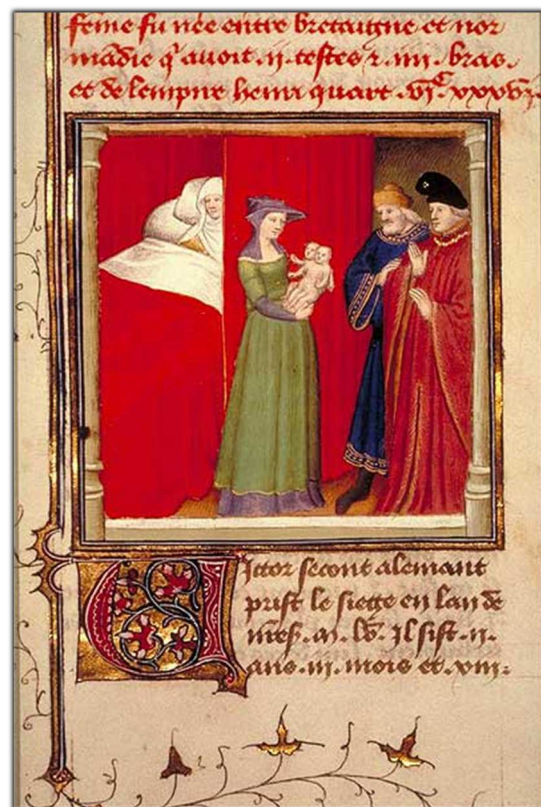 feme fu nee entre bretaigne et nor
mādie q̄ avoit .ij. testes z. iiij. bras.
et de lempire henri quart
Victor second alemant
prist le siege en lan de
.ij.
ans .iij. mois et .xviij.